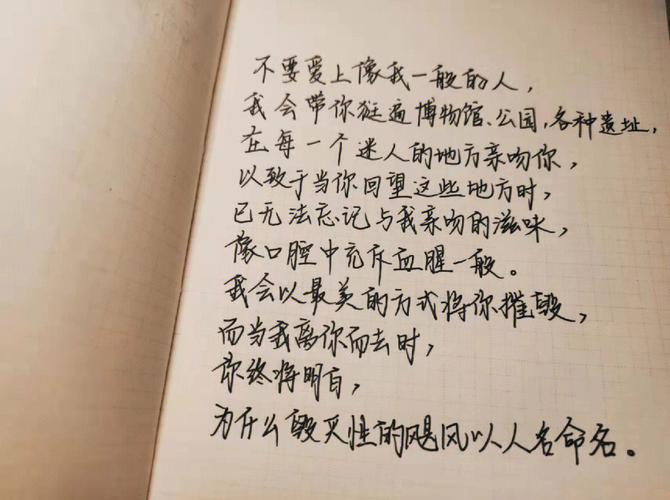 不要爱上像我一般的人，
我会带你逛遍博物馆、公园，各种遗址，
在每一个迷人的地方亲吻你，
以致于当你回望这些地方时，
已无法忘记与我亲吻的滋味，
像口腔中充斥血腥一般。
我会以最美的方式将你摧毁，
而当我离你而去时，
你终将明白，
为什么毁灭性的飓风以人名命名。